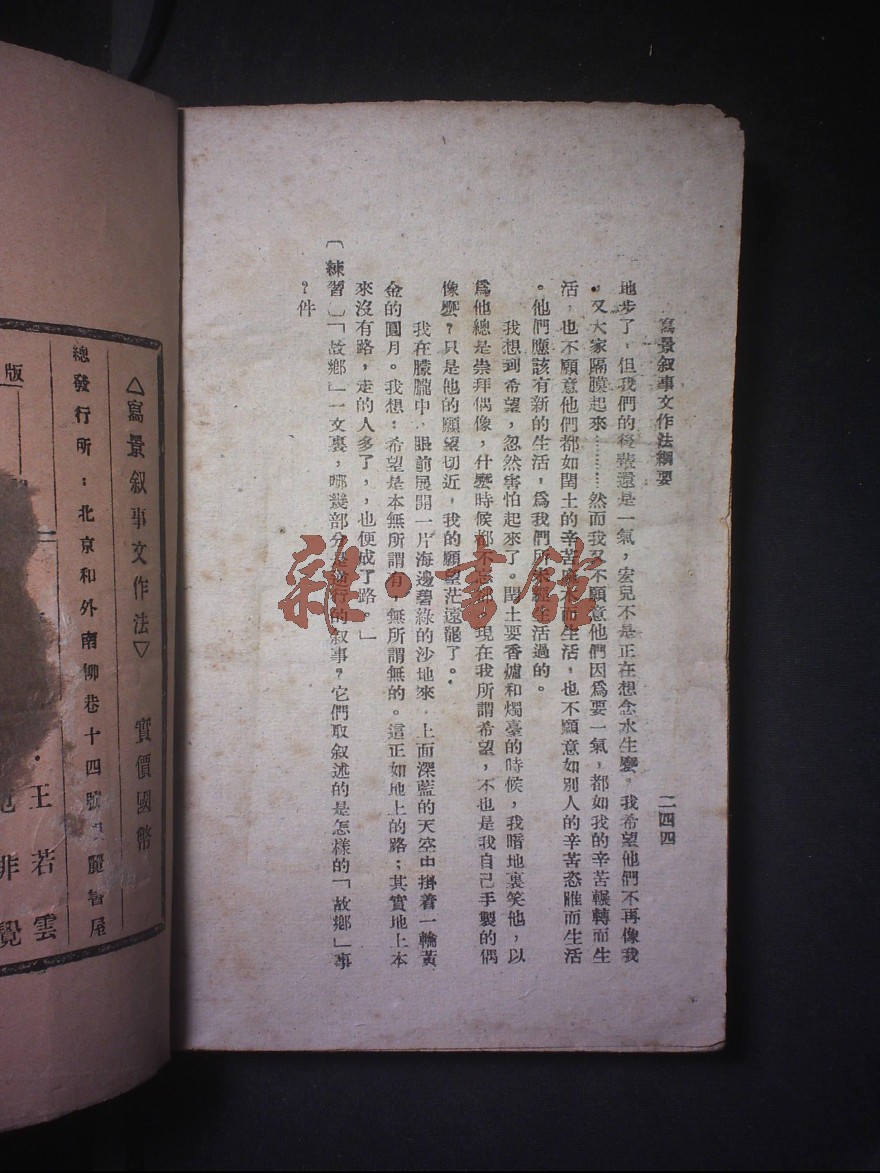 寫景叙事文作法綱要
二四四
地步了，但我們的後輩還是一氣，宏兒不是正在想念水生麼。我希望他們不再像我
，又大家隔膜起來………然而我又不願意他們因爲要一氣，都如我的辛苦輾轉而生
活，也不願意他們都如閏土的辛苦麻木而生活，也不願意如別人的辛苦恣睢而生活
。他們應該有新的生活，爲我們所未經生活過的。
我想到希望，忽然害怕起來了。閏土要香爐和燭臺的時候，我暗地裏笑他，以
爲他總是崇拜偶像，什麼時候都不忘却，現在我所謂希望，不也是我自己手製的偶
像麼？只是他的願望切近，我的願望茫遠罷了。
我在朦朧中，眼前展開一片海邊碧綠的沙地來，上面深藍的天空中掛着一輪黃
金的圓月。我想：希望是本無所謂有，無所謂無的。這正如地上的路；其實地上本
來沒有路，走的人多了，，也便成了路。」
〔練習〕「故鄉」一文裏，哪幾部分是逆行的叙事？它們取叙述的是怎樣的「故鄉」事
？件
雜·書館
版
△寫景叙事文作法▽ 實價國幣
總發行所：北京和外南柳巷十四號
王若雲
非覺